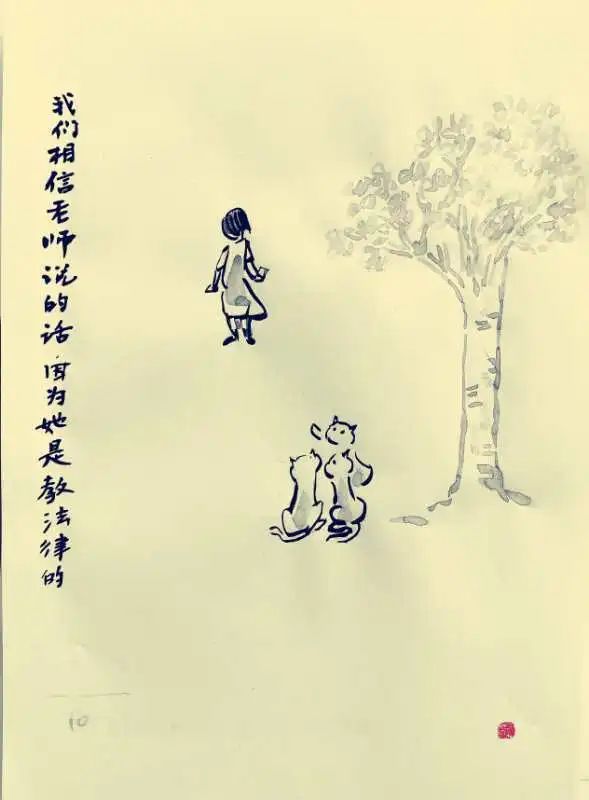 我们相信老师说的话因为她是教法律的
10